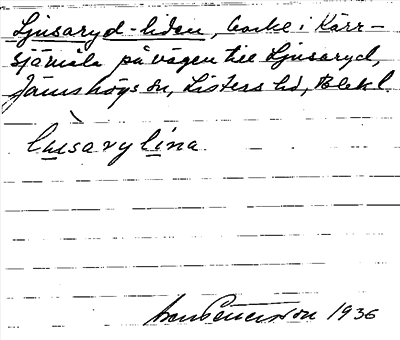 Ljusaryd-liden, backe i Kärr-
sjömåla på vägen till Ljusaryd,
Jämshögs sn, Listers hd, Blekl.
lusarylina.
1936